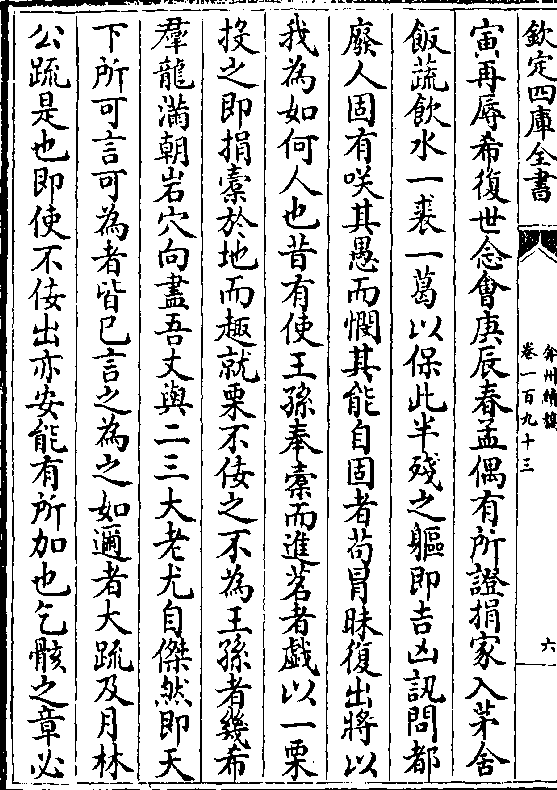 欽定四庫全書
弇州續稿
卷一百九十三
六
寅再辱希復世念會庚辰春孟偶有所證捐家入茅舍
飯蔬飲水一裘一葛以保此半殘之軀即吉凶訊問都
廢人固有咲其愚而憫其能自固者茍冒昧復出將以
我為如何人也昔有使王孫奉橐而進茗者戲以一栗
投之即捐橐於地而趣就栗不佞之不為王孫者幾希
羣龍滿朝岩穴向盡吾丈與二三大老尤自傑然即天
下所可言可為者皆已言之為之如邇者大疏及月林
公疏是也即使不佞出亦安能有所加也乞骸之章必